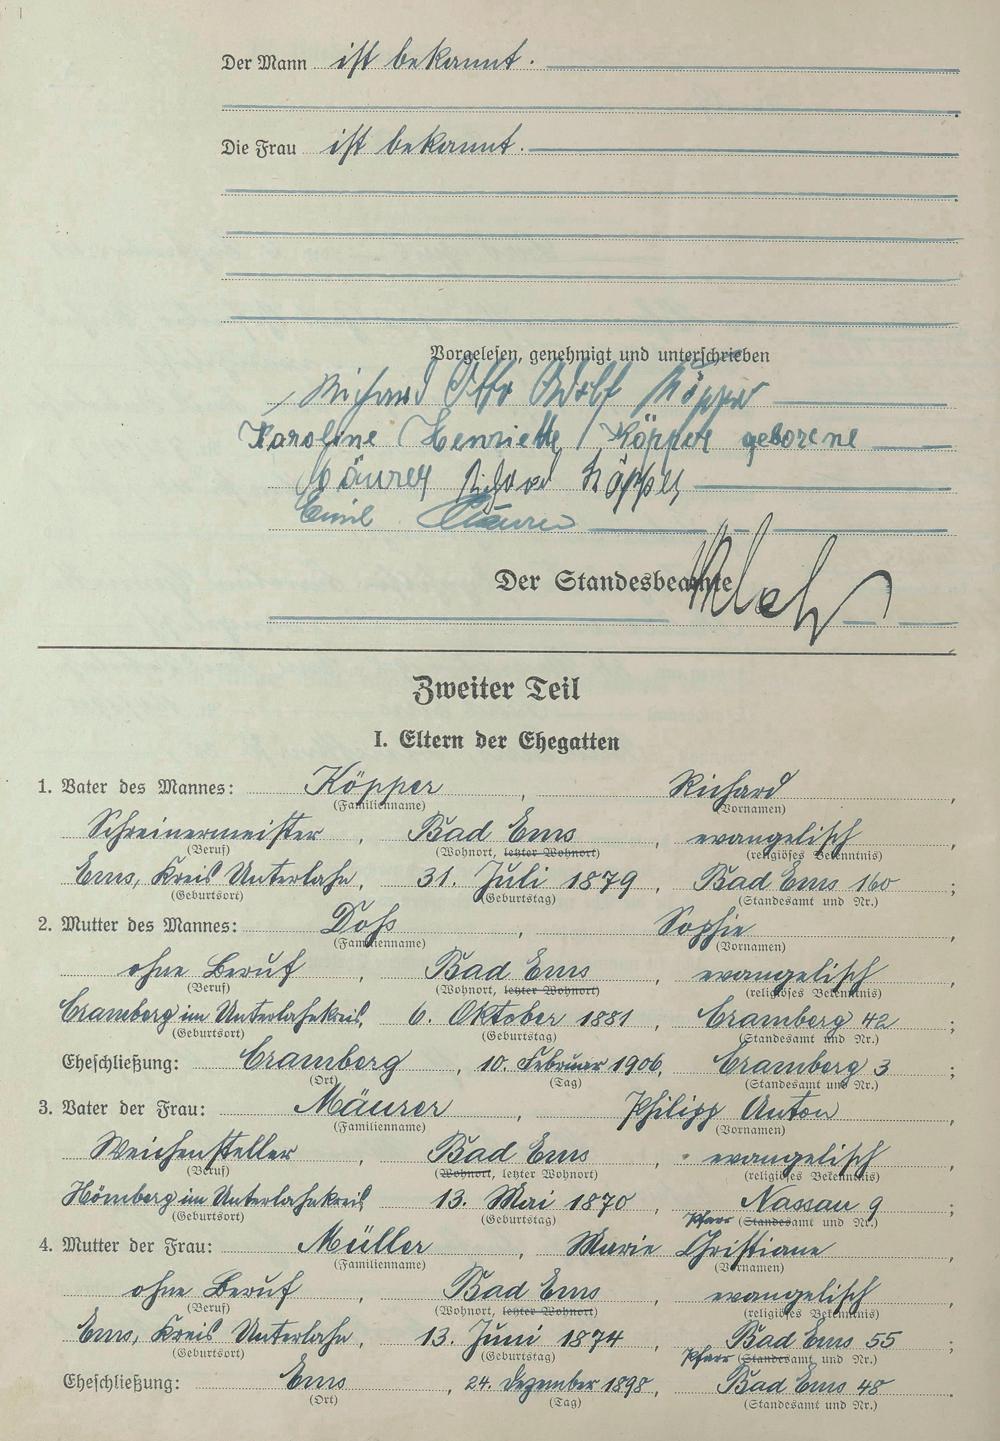 Der Mann ist bekannt.
Die Frau ist bekannt.
Vorgelesen, genehmigt und unterschrieben
Richard Otto Adolf Köpper
Karoline Henriette Köpper geborene
Mäurer Richard Köpper
Emil Mäurer
Der Standesbeamte
Zweiter Teil
I. Eltern der Ehegatten
1. Vater des Mannes: Köpper, Richard,
(Familienname) (Vornamen)
Schreinermeister, Bad Ems, evangelisch,
(Beruf) (Wohnort, letzter Wohnort) (religiöses Bekenntnis)
Ems, Kreis Unterlahn, 31. Juli 1879, Bad Ems 160;
(Geburtsort) (Geburtstag) (Standesamt und Nr.)
2. Mutter des Mannes: Doß, Sophie,
(Familienname) (Vornamen)
ohne Beruf, Bad Ems, evangelisch,
(Beruf) (Wohnort, letzter Wohnort) (religiöses Bekenntnis)
Cramberg im Unterlahnkreis, 6. Oktober 1881, Cramberg 42;
(Geburtsort) (Geburtstag) (Standesamt und Nr.)
Eheschließung: Cramberg, 10. Februar 1906, Cramberg 3;
(Ort) (Tag) (Standesamt und Nr.)
3. Vater der Frau: Mäurer, Philipp Anton,
(Familienname) (Vornamen)
Weichensteller, Bad Ems, evangelisch,
(Beruf) (Wohnort, letzter Wohnort) (religiöses Bekenntnis)
Hömberg im Unterlahnkreis, 13. Mai 1870, Nassau 9;
(Geburtsort) (Geburtstag) Pfarr (Standesamt und Nr.)
4. Mutter der Frau: Müller, Marie Christiane,
(Familienname) (Vornamen)
ohne Beruf, Bad Ems, evangelisch,
(Beruf) (Wohnort, letzter Wohnort) (religiöses Bekenntnis)
Ems, Kreis Unterlahn, 13. Juni 1874, Bad Ems 55;
(Geburtsort) (Geburtstag) Pfarr (Standesamt und Nr.)
Eheschließung: Ems, 24. Dezember 1898, Bad Ems 48.
(Ort) (Tag) (Standesamt und Nr.)